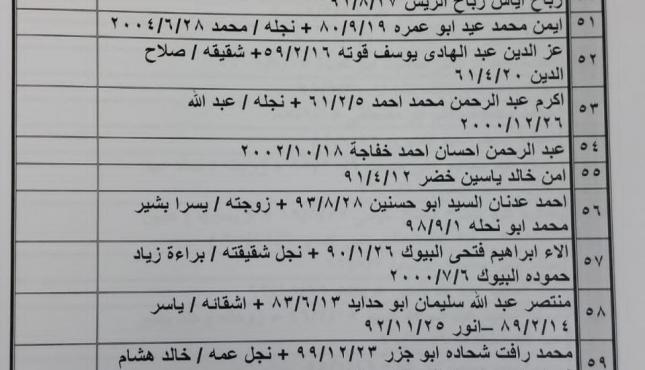 رباح اياس رباح الريس ٩١/٨/١٧
٥١ ايمن محمد عيد ابو عمره ٨٠/٩/١٩ + نجله / محمد ٢٠٠٤/٦/٢٨
٥٢ عز الدين عبد الهادى يوسف قوته ٥٩/٢/١٦+ شقيقه / صلاح
الدين ٦١/٤/٢٠
٥٣ اكرم عبد الرحمن محمد احمد ٦١/٢/٥ + نجله / عبد الله
٢٠٠٠/١٢/٢٦
٥٤ عبد الرحمن احسان احمد خفاجة ٢٠٠٢/١٠/١٨
٥٥ امن خالد ياسين خضر ٩١/٤/١٢
٥٦ احمد عدنان السيد ابو حسنين ٩٣/٨/٢٨ + زوجته / يسرا بشير
محمد ابو نحله ٩٨/٩/١
٥٧ الاء ابراهيم فتحى البيوك ٩٠/١/٢٦ + نجل شقيقته / براءة زياد
حموده البيوك ٢٠٠٠/٧/٦
٥٨ منتصر عبد الله سليمان ابو حدايد ٨٣/٦/١٣ + اشقائه / ياسر
٨٩/٢/١٤ –انور ٩٢/١١/٢٥
٥٩ محمد رافت شحاده ابو جزر ٩٩/١٢/٢٣ + نجل عمه / خالد هشام